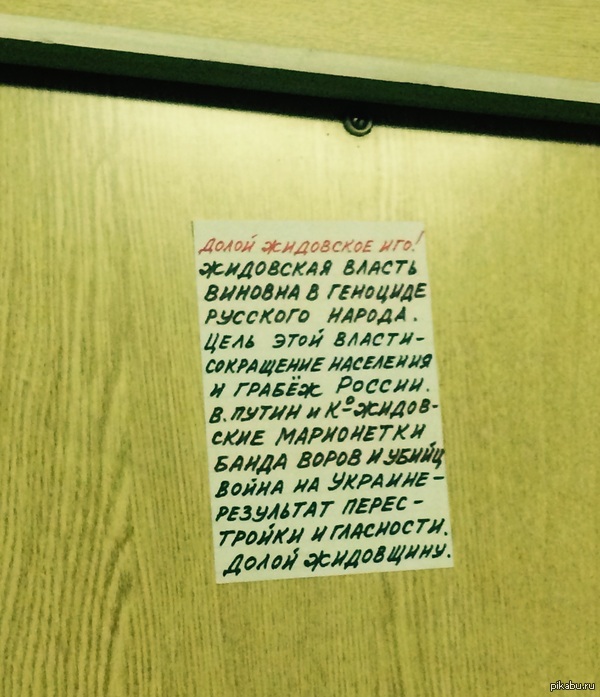 ДОЛОЙ ЖИДОВСКОЕ ИГО!
ЖИДОВСКАЯ ВЛАСТЬ
ВИНОВНА В ГЕНОЦИДЕ
РУССКОГО НАРОДА.
ЦЕЛЬ ЭТОЙ ВЛАСТИ-
СОКРАЩЕНИЕ НАСЕЛЕНИЯ
И ГРАБЁЖ РОССИИ.
В. ПУТИН И Кº ЖИДОВ-
СКИЕ МАРИОНЕТКИ
БАНДА ВОРОВ И УБИЙЦ
ВОЙНА НА УКРАИНЕ-
РЕЗУЛЬТАТ ПЕРЕС-
ТРОЙКИ И ГЛАСНОСТИ.
ДОЛОЙ ЖИДОВЩИНУ.
pikabu.ru